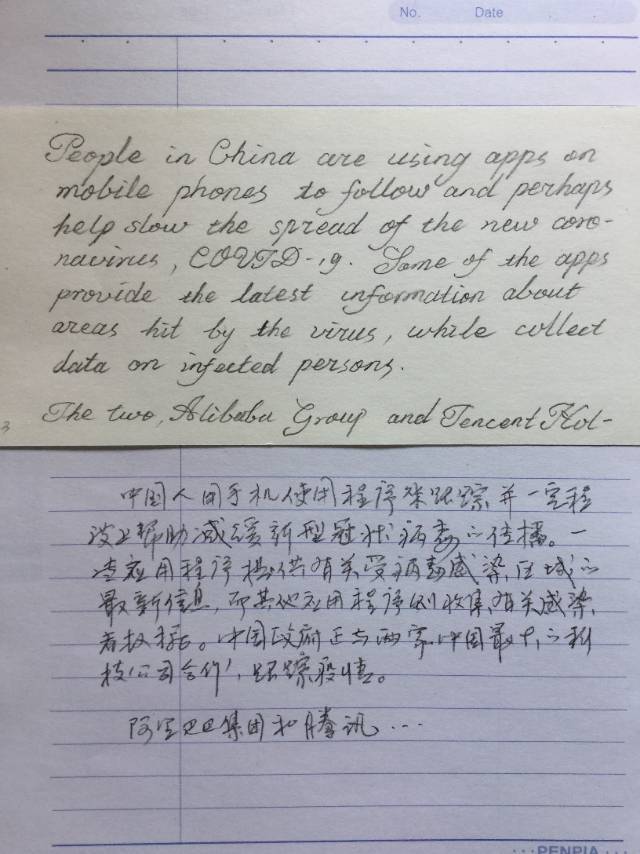 No. Date
People in China are using apps on
mobile phones to follow and perhaps
help slow the spread of the new coro-
navirus, COVID-19. Some of the apps
provide the latest information about
areas hit by the virus, while collect
data on infected persons.
The two, Alibaba Group and Tencent Hol-
3
中国人用手机使用程序来跟踪并一定程
度上帮助减缓新型冠状病毒的传播。一
些应用程序提供有关受病毒感染区域的
最新信息,而其他应用程序则收集有关感染
者数据。中国政府正与两家中国最大的科
技公司合作,跟踪疫情。
阿里巴巴集团和腾讯...
...PENPIA...